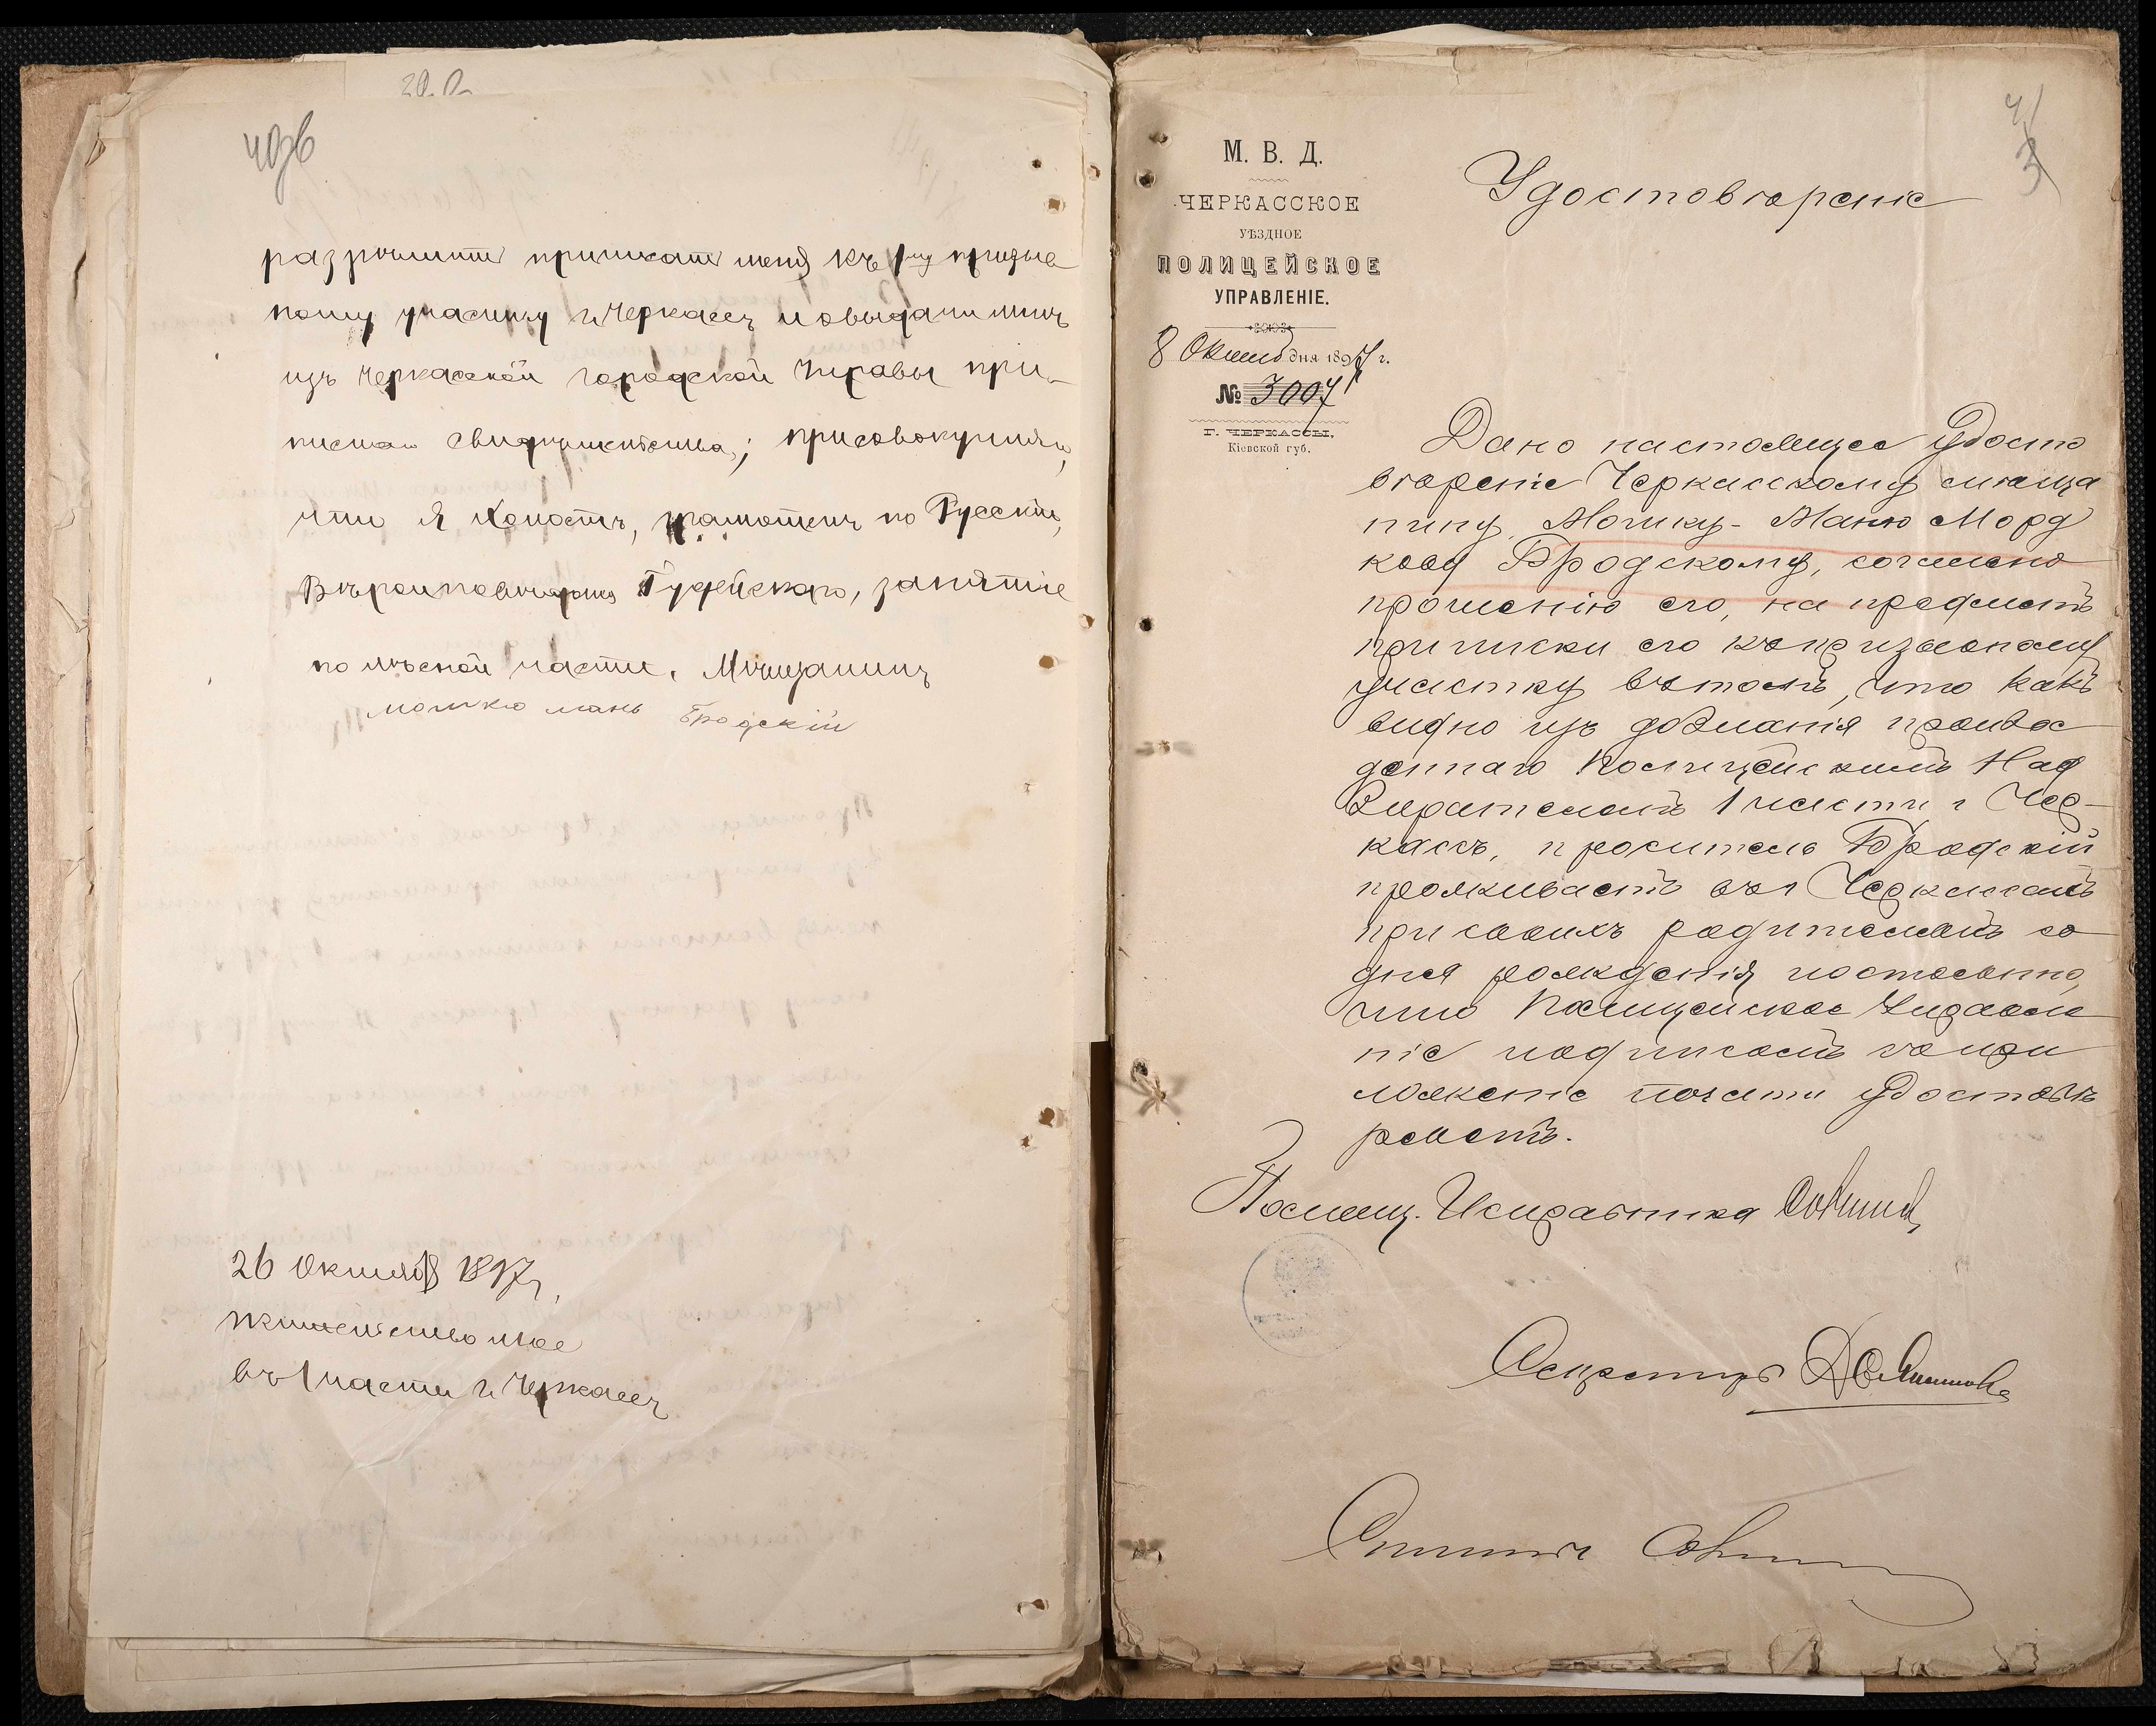 40об
разрѣшить приписать меня къ 1му призыв
ному участку г. Черкассъ и о выдачи мнѣ
изъ Черкасской городской Управы при-
писнаго свидѣтельства; присовокупляю,
что я холостъ, грамотенъ по Русски,
Вѣроисповѣданія Іудейскаго, занятіе
по лѣсной части. Мѣщанинъ
Мошко мань Бродскій
26 Октября 1897 г.
жительство мое
въ 1 части г. Черкассъ
41
3
М. В. Д.
ЧЕРКАССКОЕ
УѢЗДНОЕ
ПОЛИЦЕЙСКОЕ
УПРАВЛЕНІЕ.
8 Октяб дня 1897 г.
№ 3007
Г. ЧЕРКАССЫ,
Кіевской губ.
Удостовѣреніе
Дано настоящее Удосто
вѣреніе Черкасскому мѣща
нину, Мошку-Маню Морд
кову Бродскому, согласно
прошенію его, на предметъ
приписки его къ призывному
участку въ томъ, что какъ
видно изъ дознанія произве
деннаго Полицейскимъ Над
зирателемъ 1 части г. Чер-
кассъ, проситель Бродскій
проживаетъ въ г. Черкассахъ
при своихъ родителяхъ со
дня рожденія постоянно,
что Полицейское Управле
ніе подписомъ съ при
ложеніе печати Удостовѣ
ряетъ.
Помощ. Исправника
Секретарь